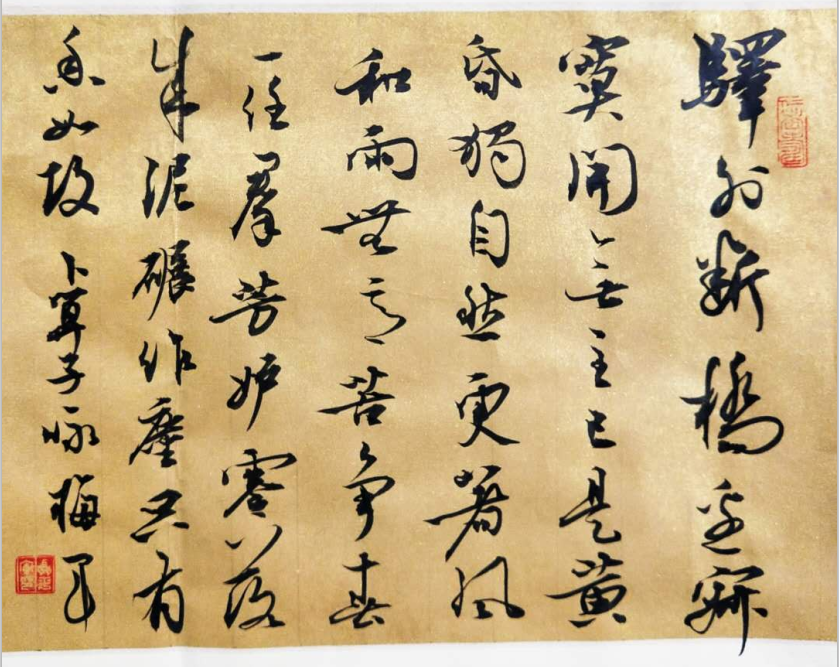 驛外斷橋邊寂
寞開無主已是黃
昏獨自愁更著風
和雨無意苦爭春
一任羣芳妒零落
成泥碾作塵只有
香如故 卜算子咏梅